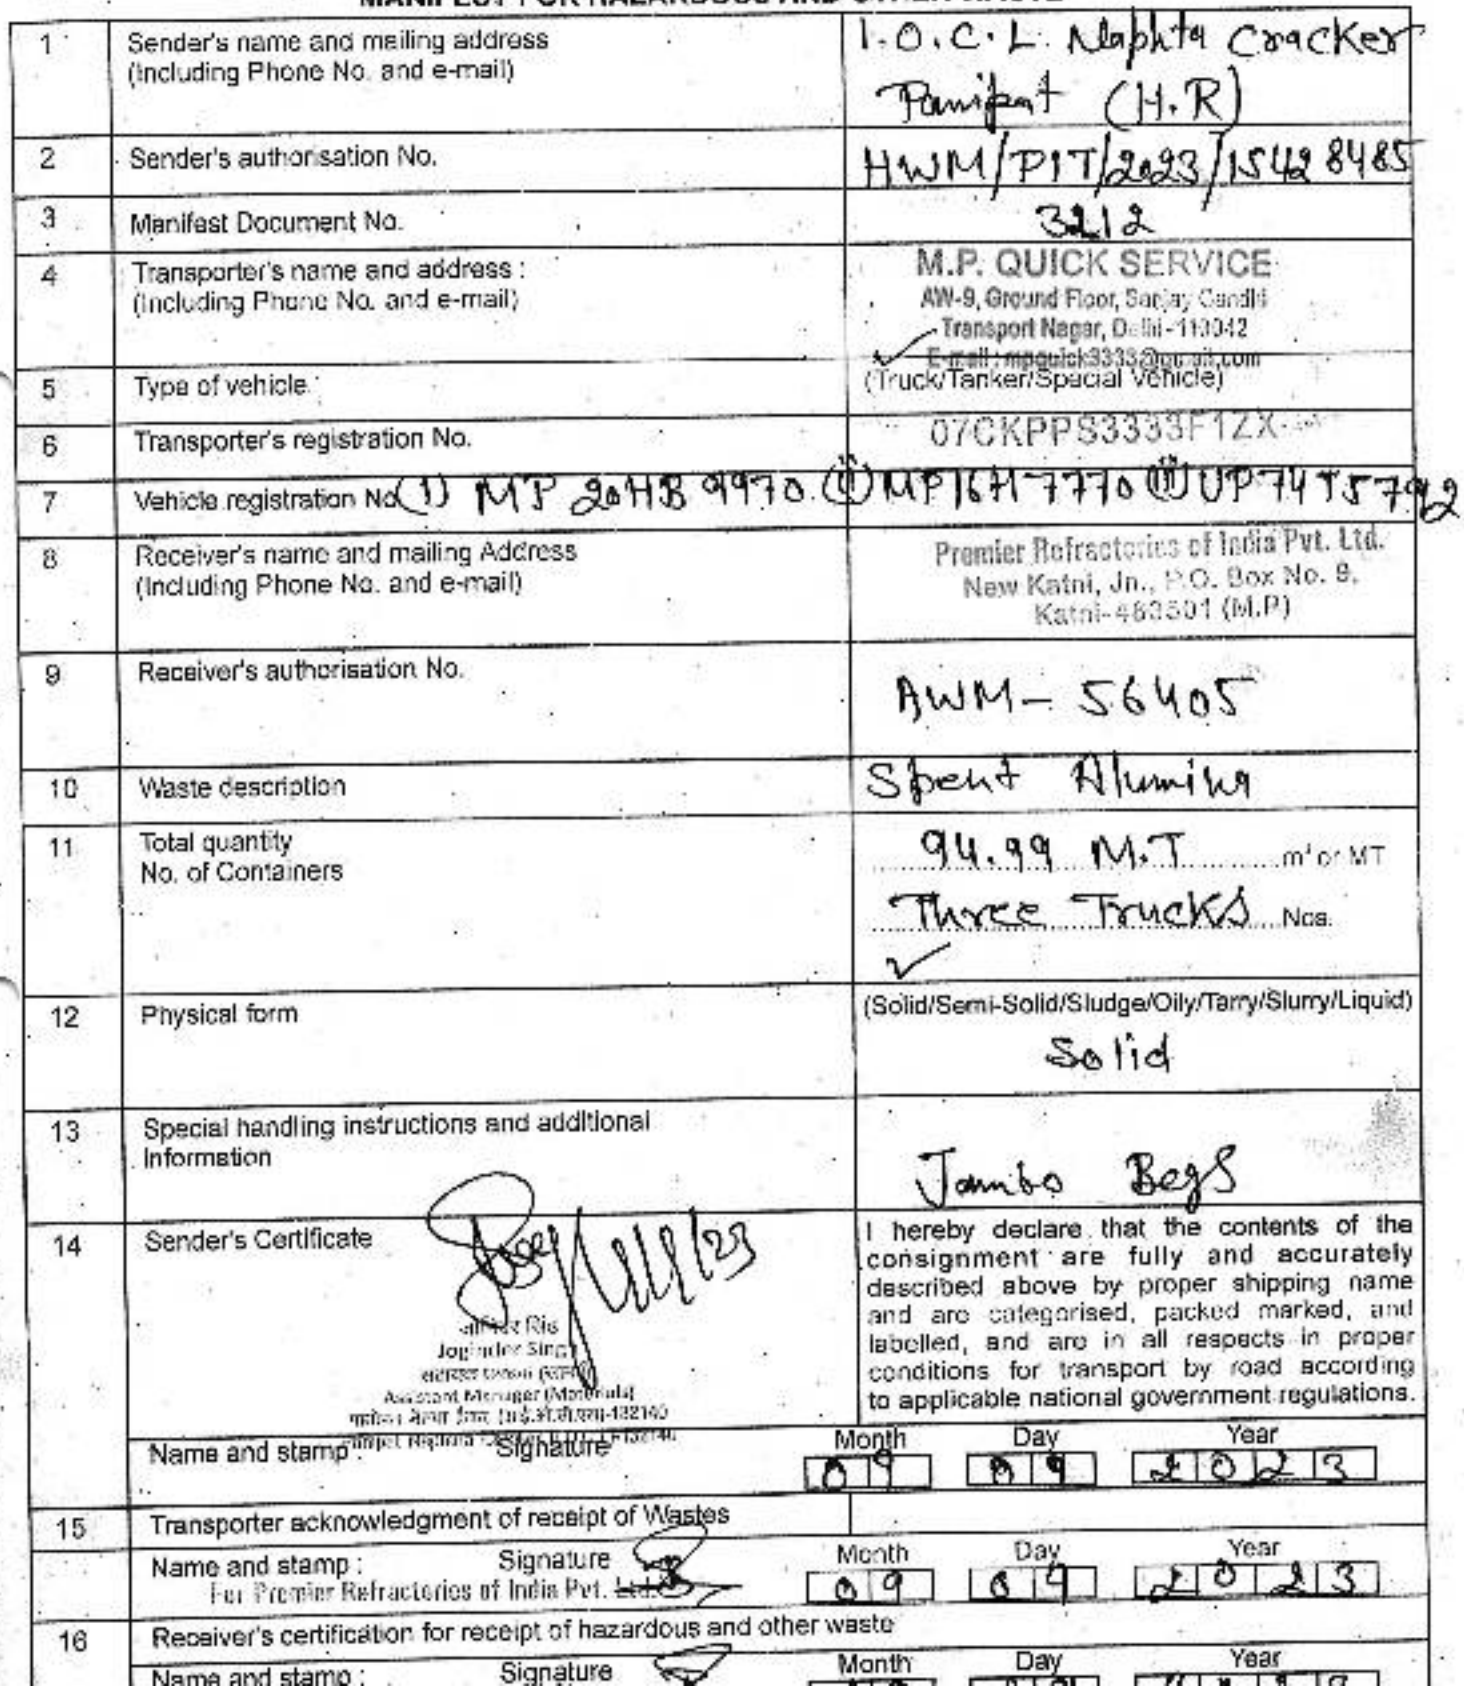 MANIFEST FOR HAZARDOUS AND OTHER WASTE
1 Sender's name and mailing address (Including Phone No. and e-mail)
I.O.C.L. Naphta Cracker
Panipat (H.R)
2 Sender's authorisation No. HWM/PIT/2023/15428485
3 Manifest Document No. 3212
4 Transporter's name and address :
(Including Phone No. and e-mail)
M.P. QUICK SERVICE
AW-9, Ground Floor, Sanjay Gandhi
Transport Nagar, Delhi-110042
E-mail : mpquick3333@gmail.com
5 Type of vehicle : (Truck/Tanker/Special Vehicle)
6 Transporter's registration No. 07CKPPS3333F1ZX
7 Vehicle registration No (i) MP 20HB 9970 (ii) MP16H7770 (iii) UP74T5792
8 Receiver's name and mailing Address
(Including Phone No. and e-mail)
Premier Refractories of India Pvt. Ltd.
New Katni, Jn., P.O. Box No. 9,
Katni-483501 (M.P)
9 Receiver's authorisation No. AWM- 56405
10 Waste description Spent Alumina
11 Total quantity 94.99 M.T m³ or MT
No. of Containers Three Trucks Nos.
12 Physical form (Solid/Semi-Solid/Sludge/Oily/Tarry/Slurry/Liquid)
Solid
13 Special handling instructions and additional
Information
Jambo Begs
14 Sender's Certificate
I hereby declare that the contents of the
consignment are fully and accurately
described above by proper shipping name
and are categorised, packed marked, and
labelled, and are in all respects in proper
conditions for transport by road according
to applicable national government regulations.
Joginder Singh
Assistant Manager (Materials)
Name and stamp : Signature Month Day Year
09 09 2023
15 Transporter acknowledgment of receipt of Wastes
Name and stamp : Signature Month Day Year
For Premier Refractories of India Pvt. Ltd. 09 09 2023
16 Receiver's certification for receipt of hazardous and other waste
Name and stamp : Signature Month Day Year